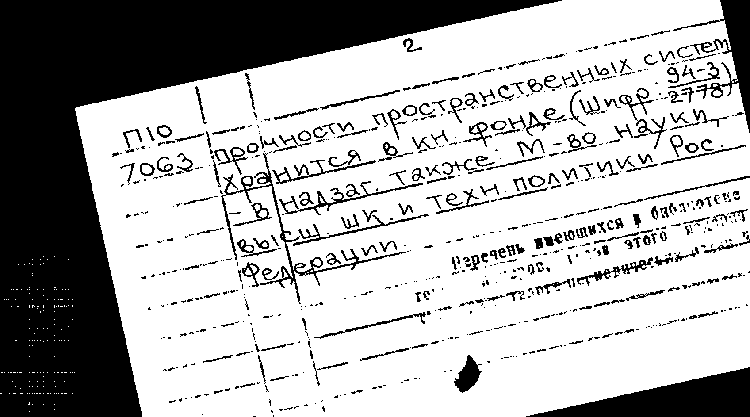 2
П10
7063
прочности пространственных систем
хранится в кн фонде (Шифр: 94-3/2778)
- В надзаг. также: М-во науки,
высш шк. и техн. политики Рос.
Федерации.
Перечень имеющихся в библиотеке
этого